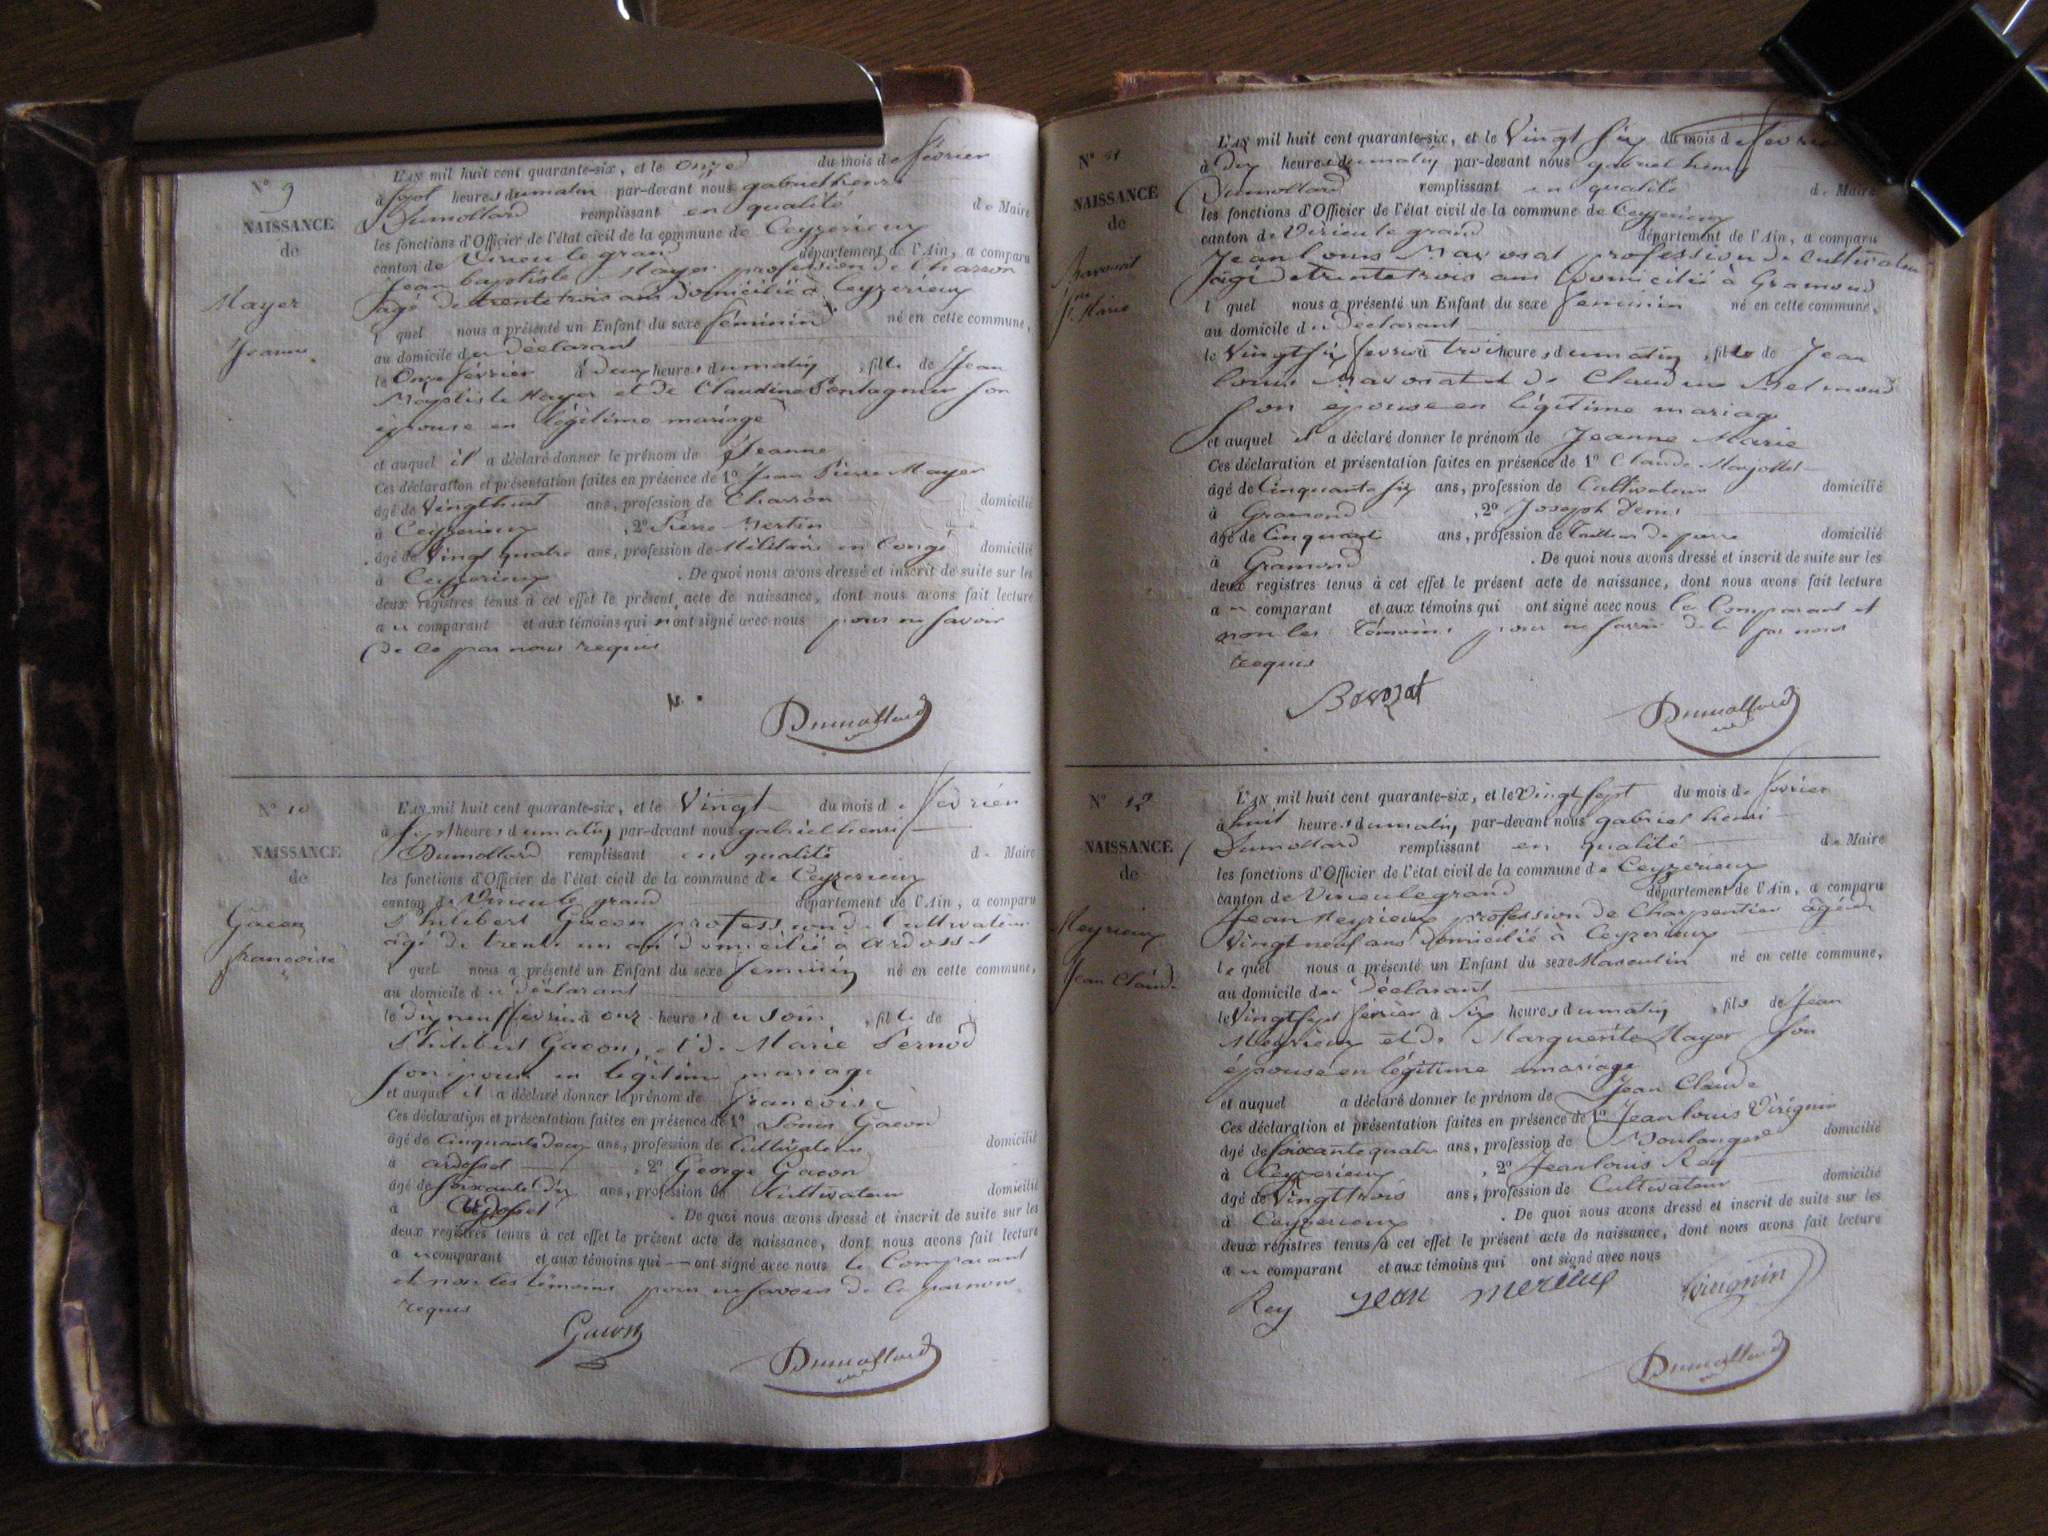 N° 9
NAISSANCE
de
Mayer
Jeanne
L'AN mil huit cent quarante-six, et le onze du mois de février
à sept heures du matin par-devant nous gabriel henri
Dumollard remplissant en qualité de Maire
les fonctions d'Officier de l'état civil de la commune de Ceyzerieux
canton de Virieu le grand département de l'Ain, a comparu
Jean baptiste Mayer profession de Charron
âgé de trente trois ans domicilié à Ceyzerieux
l quel nous a présenté un Enfant du sexe féminin né en cette commune,
au domicile du Déclarant
le Onze février à deux heures du matin, fille de Jean
Baptiste Mayer et de Claudine son
épouse en légitime mariage
et auquel il a déclaré donner le prénom de Jeanne
Ces déclaration et présentation faites en présence de 1° Jean Pierre Mayer
âgé de Vingt huit ans, profession de Charron domicilié
à Ceyzerieux , 2° Pierre Mertin
âgé de Vingt quatre ans, profession de Militaire en Congé domicilié
à Ceyzerieux . De quoi nous avons dressé et inscrit de suite sur les
deux registres tenus à cet effet le présent acte de naissance, dont nous avons fait lecture
a u comparant et aux témoins qui n ont signé avec nous pour ne savoir
de ce par nous requis
Dumollard
N° 10
NAISSANCE
de
Gacon
françoise
L'AN mil huit cent quarante-six, et le Vingt du mois de février
à sept heures du matin, par-devant nous gabriel henri
Dumollard remplissant en qualité de Maire
les fonctions d'Officier de l'état civil de la commune de Ceyzerieux
canton de Virieu le grand département de l'Ain, a comparu
Philibert Gacon profession de Cultivateur
âgé de trente un an domicilié à ardosset
l quel nous a présenté un Enfant du sexe feminin né en cette commune,
au domicile du déclarant
le dix neuf février à onze heures du soir, fille de
Philibert Gacon, et de Marie Pernod
son épouse en légitime mariage
et auquel il a déclaré donner le prénom de françoise
Ces déclaration et présentation faites en présence de 1° Louis Gacon
âgé de Cinquante deux ans, profession de Cultivateur domicilié
à ardosset , 2° George Gacon
âgé de soixante dix ans, profession de Cultivateur domicilié
à . De quoi nous avons dressé et inscrit de suite sur les
deux registres tenus à cet effet le présent acte de naissance, dont nous avons fait lecture
a u comparant et aux témoins qui ont signé avec nous le Comparant
et non les témoins pour ne savoir de ce par nous
requis
Gacon
Dumollard
N° 11
NAISSANCE
de
Jne Marie
L'AN mil huit cent quarante-six, et le Vingt six du mois de fevrier
à dix heures du matin par-devant nous gabriel henri
Dumollard remplissant en qualité de Maire
les fonctions d'Officier de l'état civil de la commune de Ceyzerieux
canton de Virieu le grand département de l'Ain, a comparu
Jean louis profession de Cultivateur
âgé de trente trois ans domicilié à Gramond
l quel nous a présenté un Enfant du sexe feminin né en cette commune,
au domicile du Déclarant
le Vingt six fevrier à trois heures du matin, fille de Jean
louis et de Claudine
son épouse en légitime mariage
et auquel il a déclaré donner le prénom de Jeanne Marie
Ces déclaration et présentation faites en présence de 1° Claude Marjollet
âgé de Cinquante six ans, profession de Cultivateur domicilié
à Gramond , 2° Joseph
âgé de Cinquante ans, profession de Tailleur de pierre domicilié
à Gramond . De quoi nous avons dressé et inscrit de suite sur les
deux registres tenus à cet effet le présent acte de naissance, dont nous avons fait lecture
a u comparant et aux témoins qui ont signé avec nous le Comparant et
non les témoins pour ne savoir de ce par nous
requis
Dumollard
N° 12
NAISSANCE
de
Meyrieux
Jean Claude
L'AN mil huit cent quarante-six, et le Vingt sept du mois de fevrier
à huit heures du matin, par-devant nous gabriel henri
Dumollard remplissant en qualité de Maire
les fonctions d'Officier de l'état civil de la commune de Ceyzerieux
canton de Virieu le grand département de l'Ain, a comparu
Jean Meyrieux profession de Charpentier âgé de
Vingt neuf ans domicilié à Ceyzerieux
le quel nous a présenté un Enfant du sexe Masculin né en cette commune,
au domicile du Déclarant
le Vingt sept février à Six heures du matin, fils de Jean
Meyrieux et de Marguerite Mayer son
épouse en légitime mariage
et auquel a déclaré donner le prénom de Jean Claude
Ces déclaration et présentation faites en présence de 1° Jean louis Virignin
âgé de soixante quatre ans, profession de Boulanger domicilié
à Ceyzerieux , 2° Jean louis Rey
âgé de Vingt trois ans, profession de Cultivateur domicilié
à Ceyzerieux . De quoi nous avons dressé et inscrit de suite sur les
deux registres tenus à cet effet le présent acte de naissance, dont nous avons fait lecture
a u comparant et aux témoins qui ont signé avec nous
Rey Jean Virignin
Dumollard